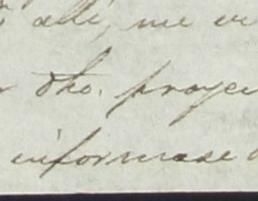 alli, me
dho. proye
informase